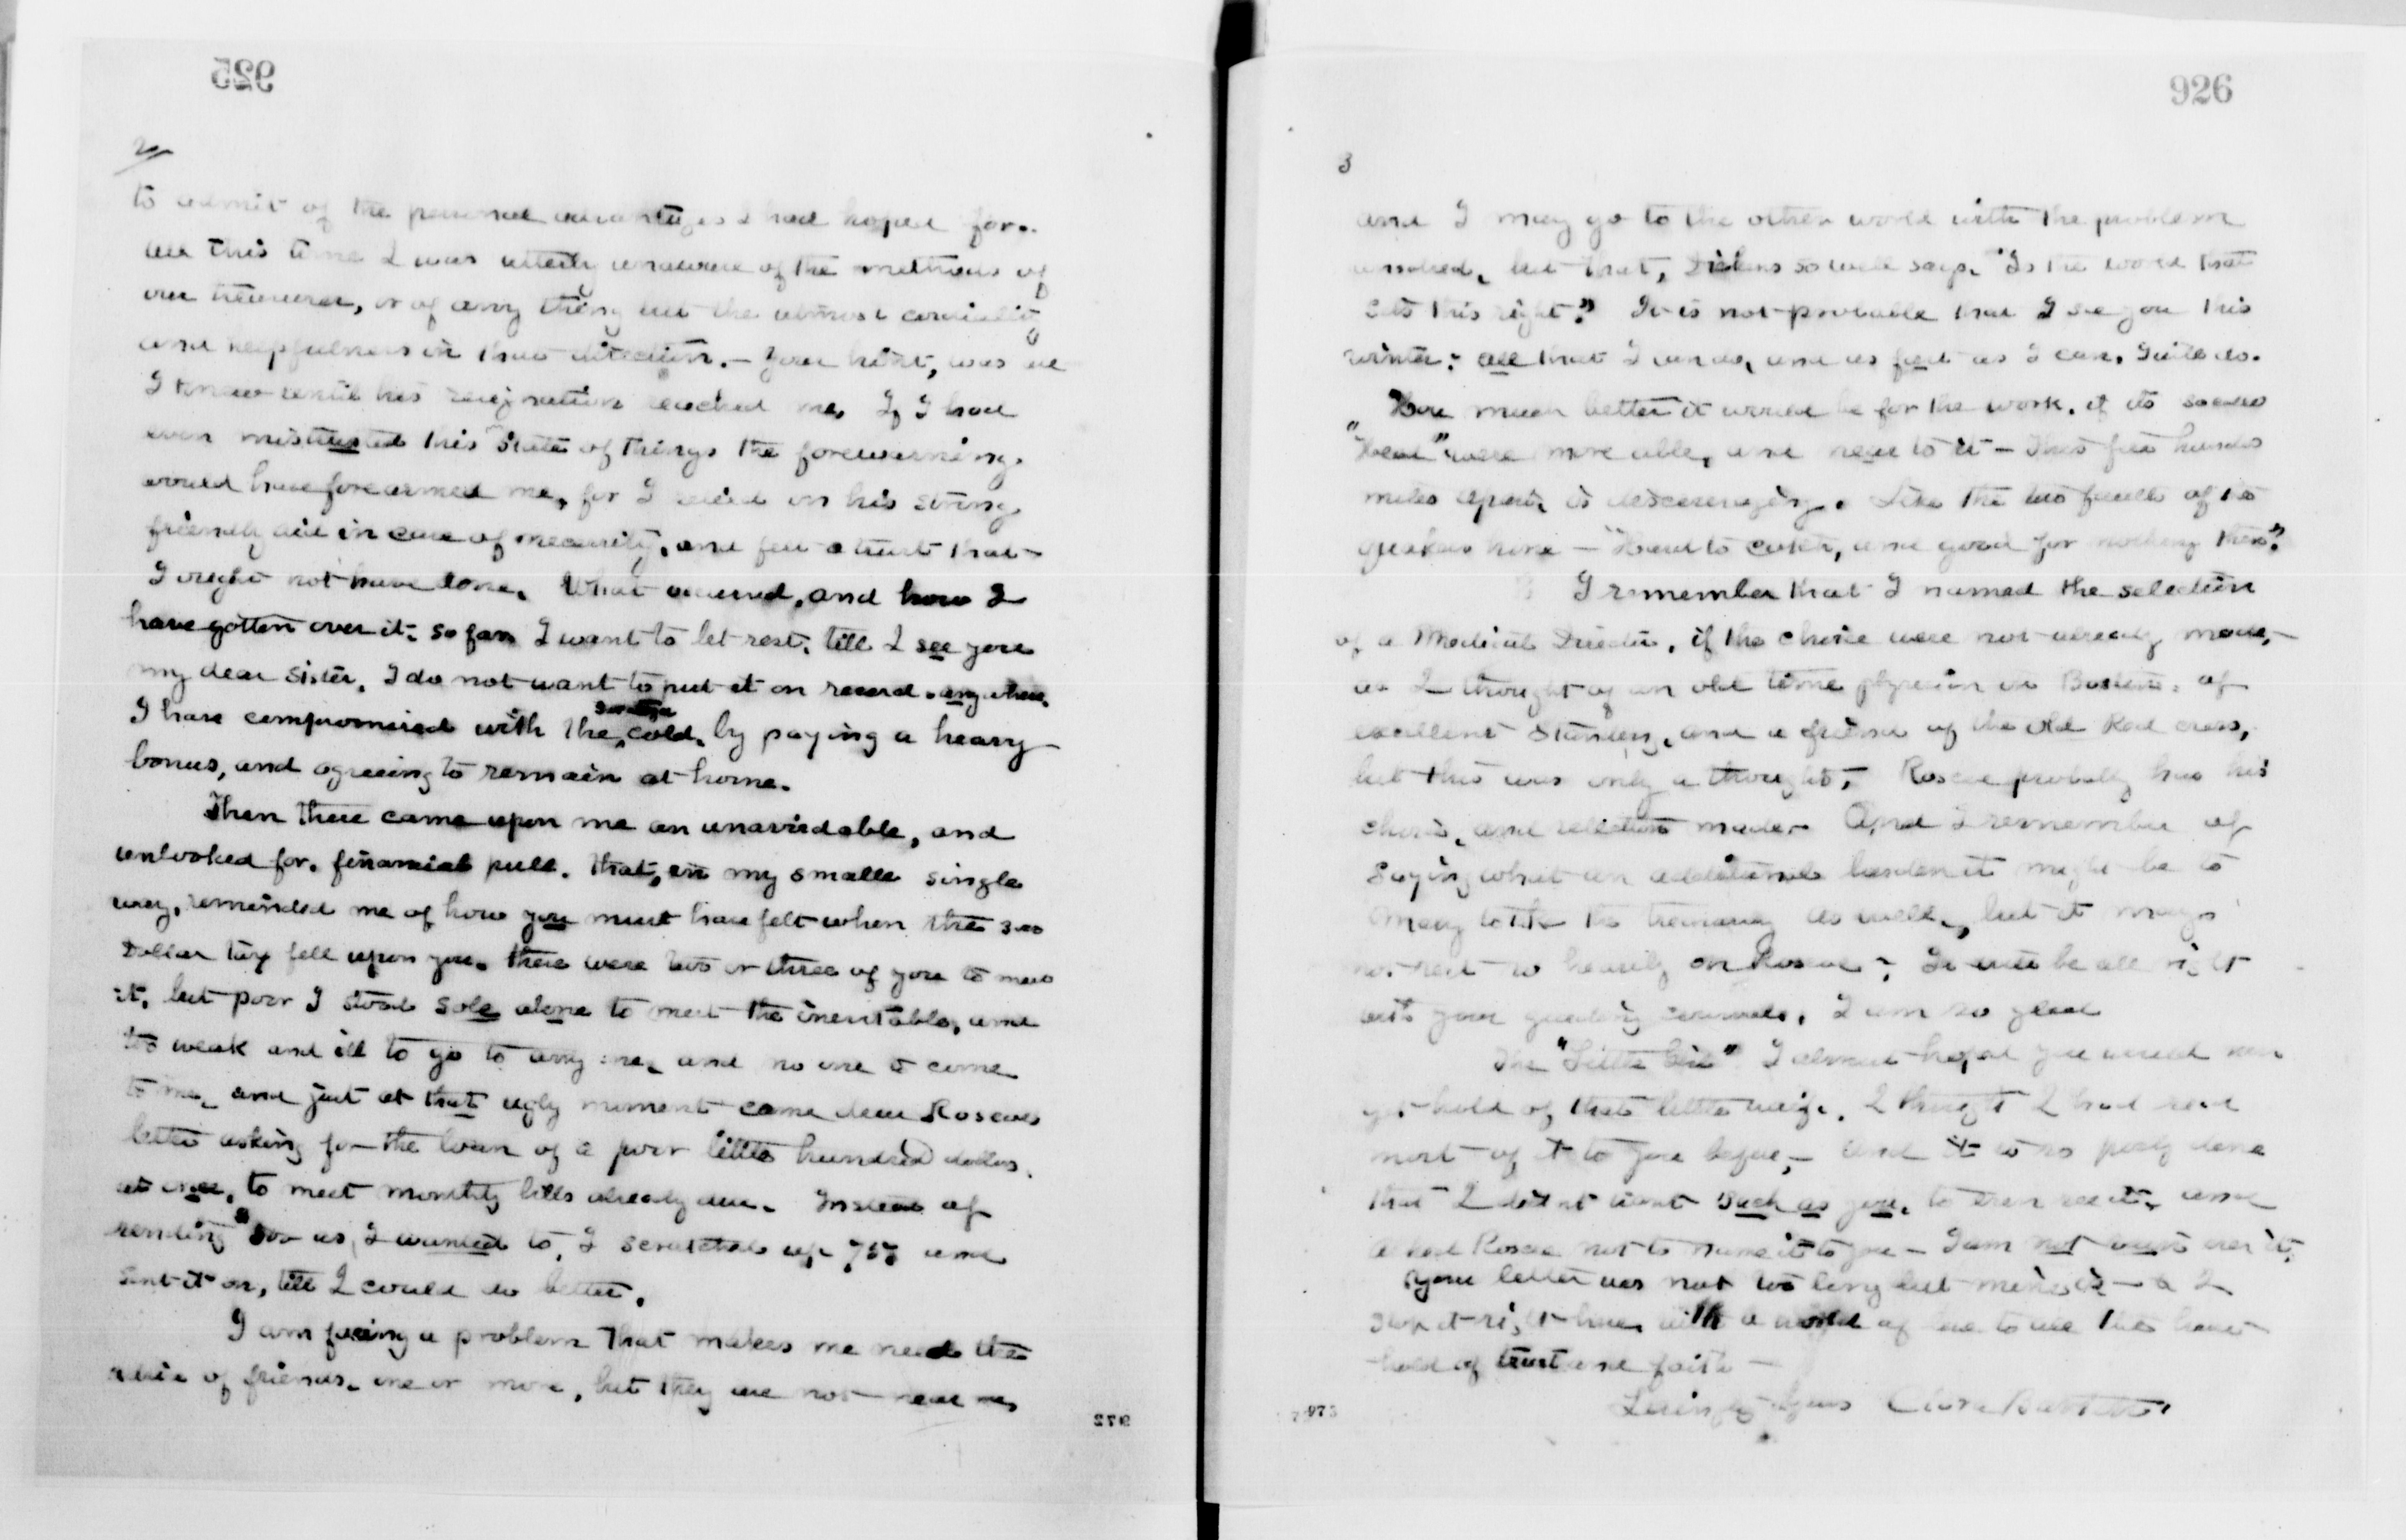 925
2
to admit of the personal advantages I had hoped for.
all this time I was utterly unaware of the methods of
our treasurer, or of any thing but the utmost cordiality
and helpfulness in that direction. - Your hint, was all
I knew until his resignation reached me. If I had
even mistrusted this state of things the forewarning.
would have forearmed me, for I relied on his strong
friendly aid in case of necessity, and felt a trust that
I ought not have done. What occurred, and how I
have gotten over it, so far, I want to let rest, till I see you
my dear sister. I do not want to put it on record anywhere.
I have compromised with the cold, by paying a heavy
bonus, and agreeing to remain at home.
Then there came upon me an unavoidable, and
unlooked for, financial pull. that, in my smalle single
way, reminded me of how you must have felt when the 300
Dollar tax fell upon you. there were two or three of you to meet
it, but poor I stood sole alone to meet the inevitable, and
too weak and ill to go to any one, and no one to come
to me, and just at that ugly moment came dear Roscoes
letter asking for the loan of a poor little hundred dollars.
at once, to meet monthly bills already due. Instead of
sending as I wanted to, I scratched up 75 and
sent it on, till I could do better.
I am facing a problem that makes me need the
advice of friends, one or more, but they are not near me,
972
926
3
and I may go to the other world with the problem
unsolved, but that, Dickens so well says, "Is the world that
sets this right." It is not probable that I see you this
winter; all that I can do, and as fast as I can, I will do.
How much better it would be for the work, if its so called
"Head" were more able, and near to it - This five hundred
miles apart, is discouraging. Like the two faults of the
quakers horse - "Hard to catch, and good for nothing then".
I remember that I named the selection
of a Medical Director, if the choice were not already made, -
as I thought of an old time physician in Boston, of
excellent standing, and a friend of the old Red cross,
but this was only a thought, - Roscoe probably has his
choice, and selection made. And I remember of
saying what an additional burden it might be to
Mary to take the treasury as well, but it may
not rest so heavily on Roscoe -, It will be all right
with your guiding counsels, I am so glad
The "Little bit" I almost hoped you would never
get hold of that little waif. I thought I had read
most of it to you before, - and it is so poorly done
that I didnt want such as you, to even see it, and
asked Roscoe not to name it to you - I am not vain over it.
Your letter was not too long but mine is - & I
stop it right here, with a world of love to all the house
hold of trust and faith -
Lovingly Yours Clara Barton
973